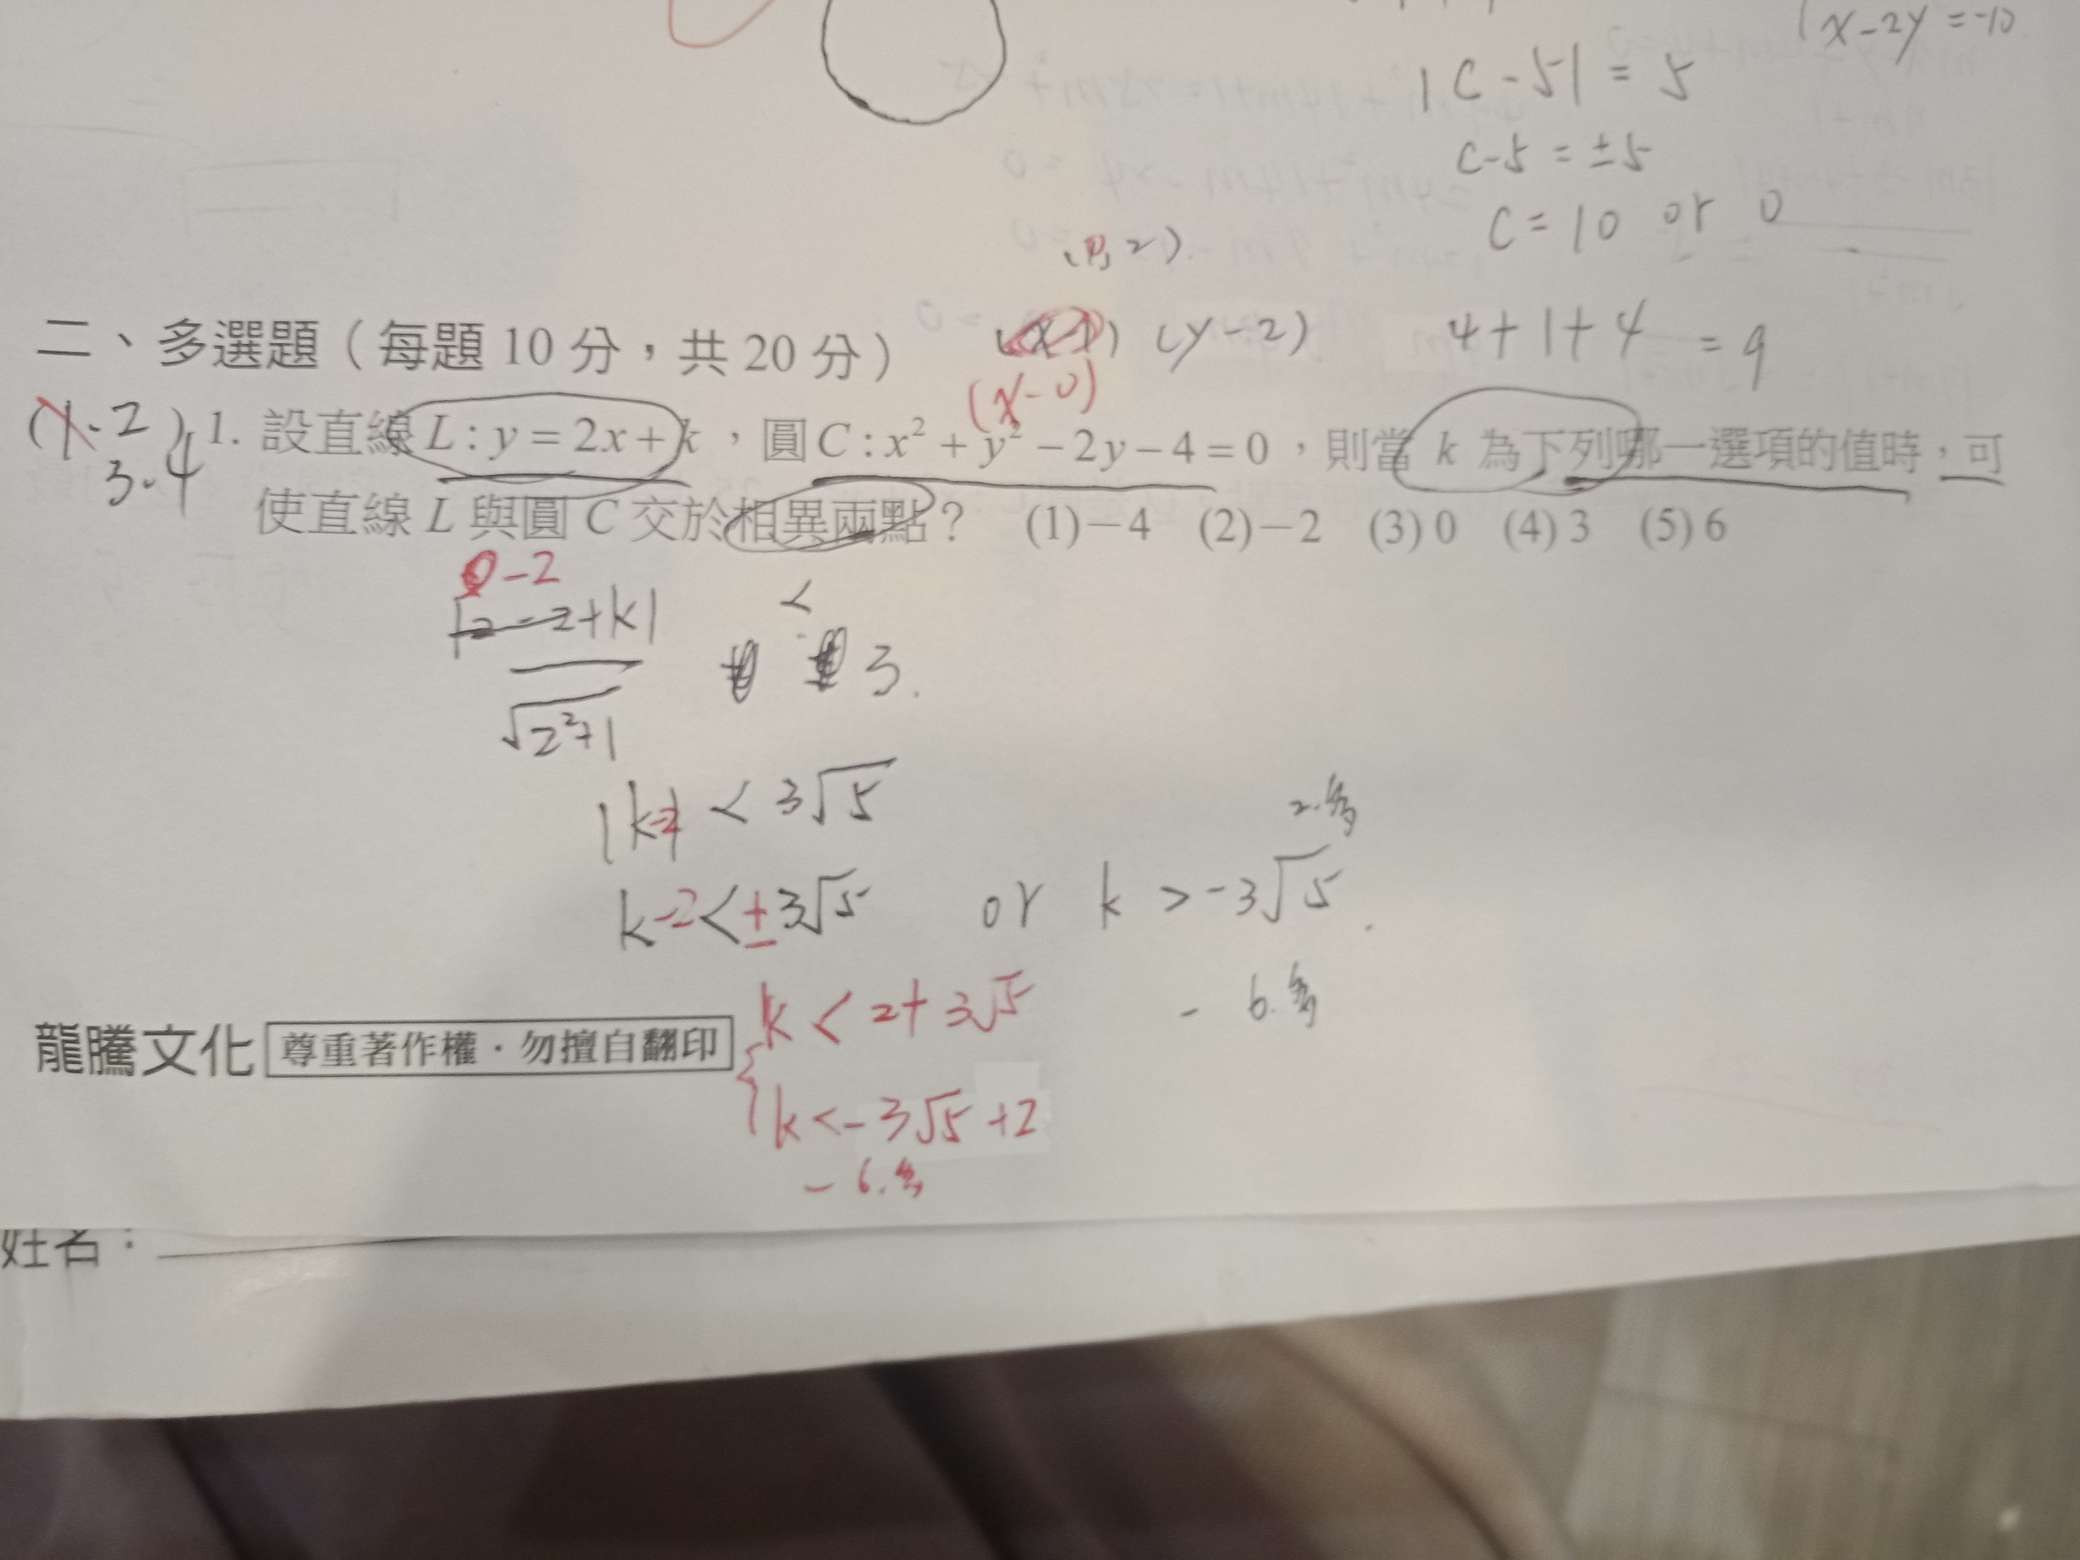 x-2y=-10
|C-5|=5
C-5=±5
C=10 or 0
二、多選題（每題10分，共20分）
(y-2)
4+1+4=9
(x-0)
(x-2)
3.4
1. 設直線L:y=2x+k，圓C:x²+y²-2y-4=0，則當k為下列哪一選項的值時，可
使直線L與圓C交於相異兩點？ (1)-4 (2)-2 (3)0 (4)3 (5)6
0-2
+k|
< 3.
√2²+1
|k-2| < 3√5
2.多
k-2<±3√5 or k>-3√5.
k<2+3√5
-6.多
龍騰文化 尊重著作權．勿擅自翻印
k<-3√5+2
-6.多
姓名：